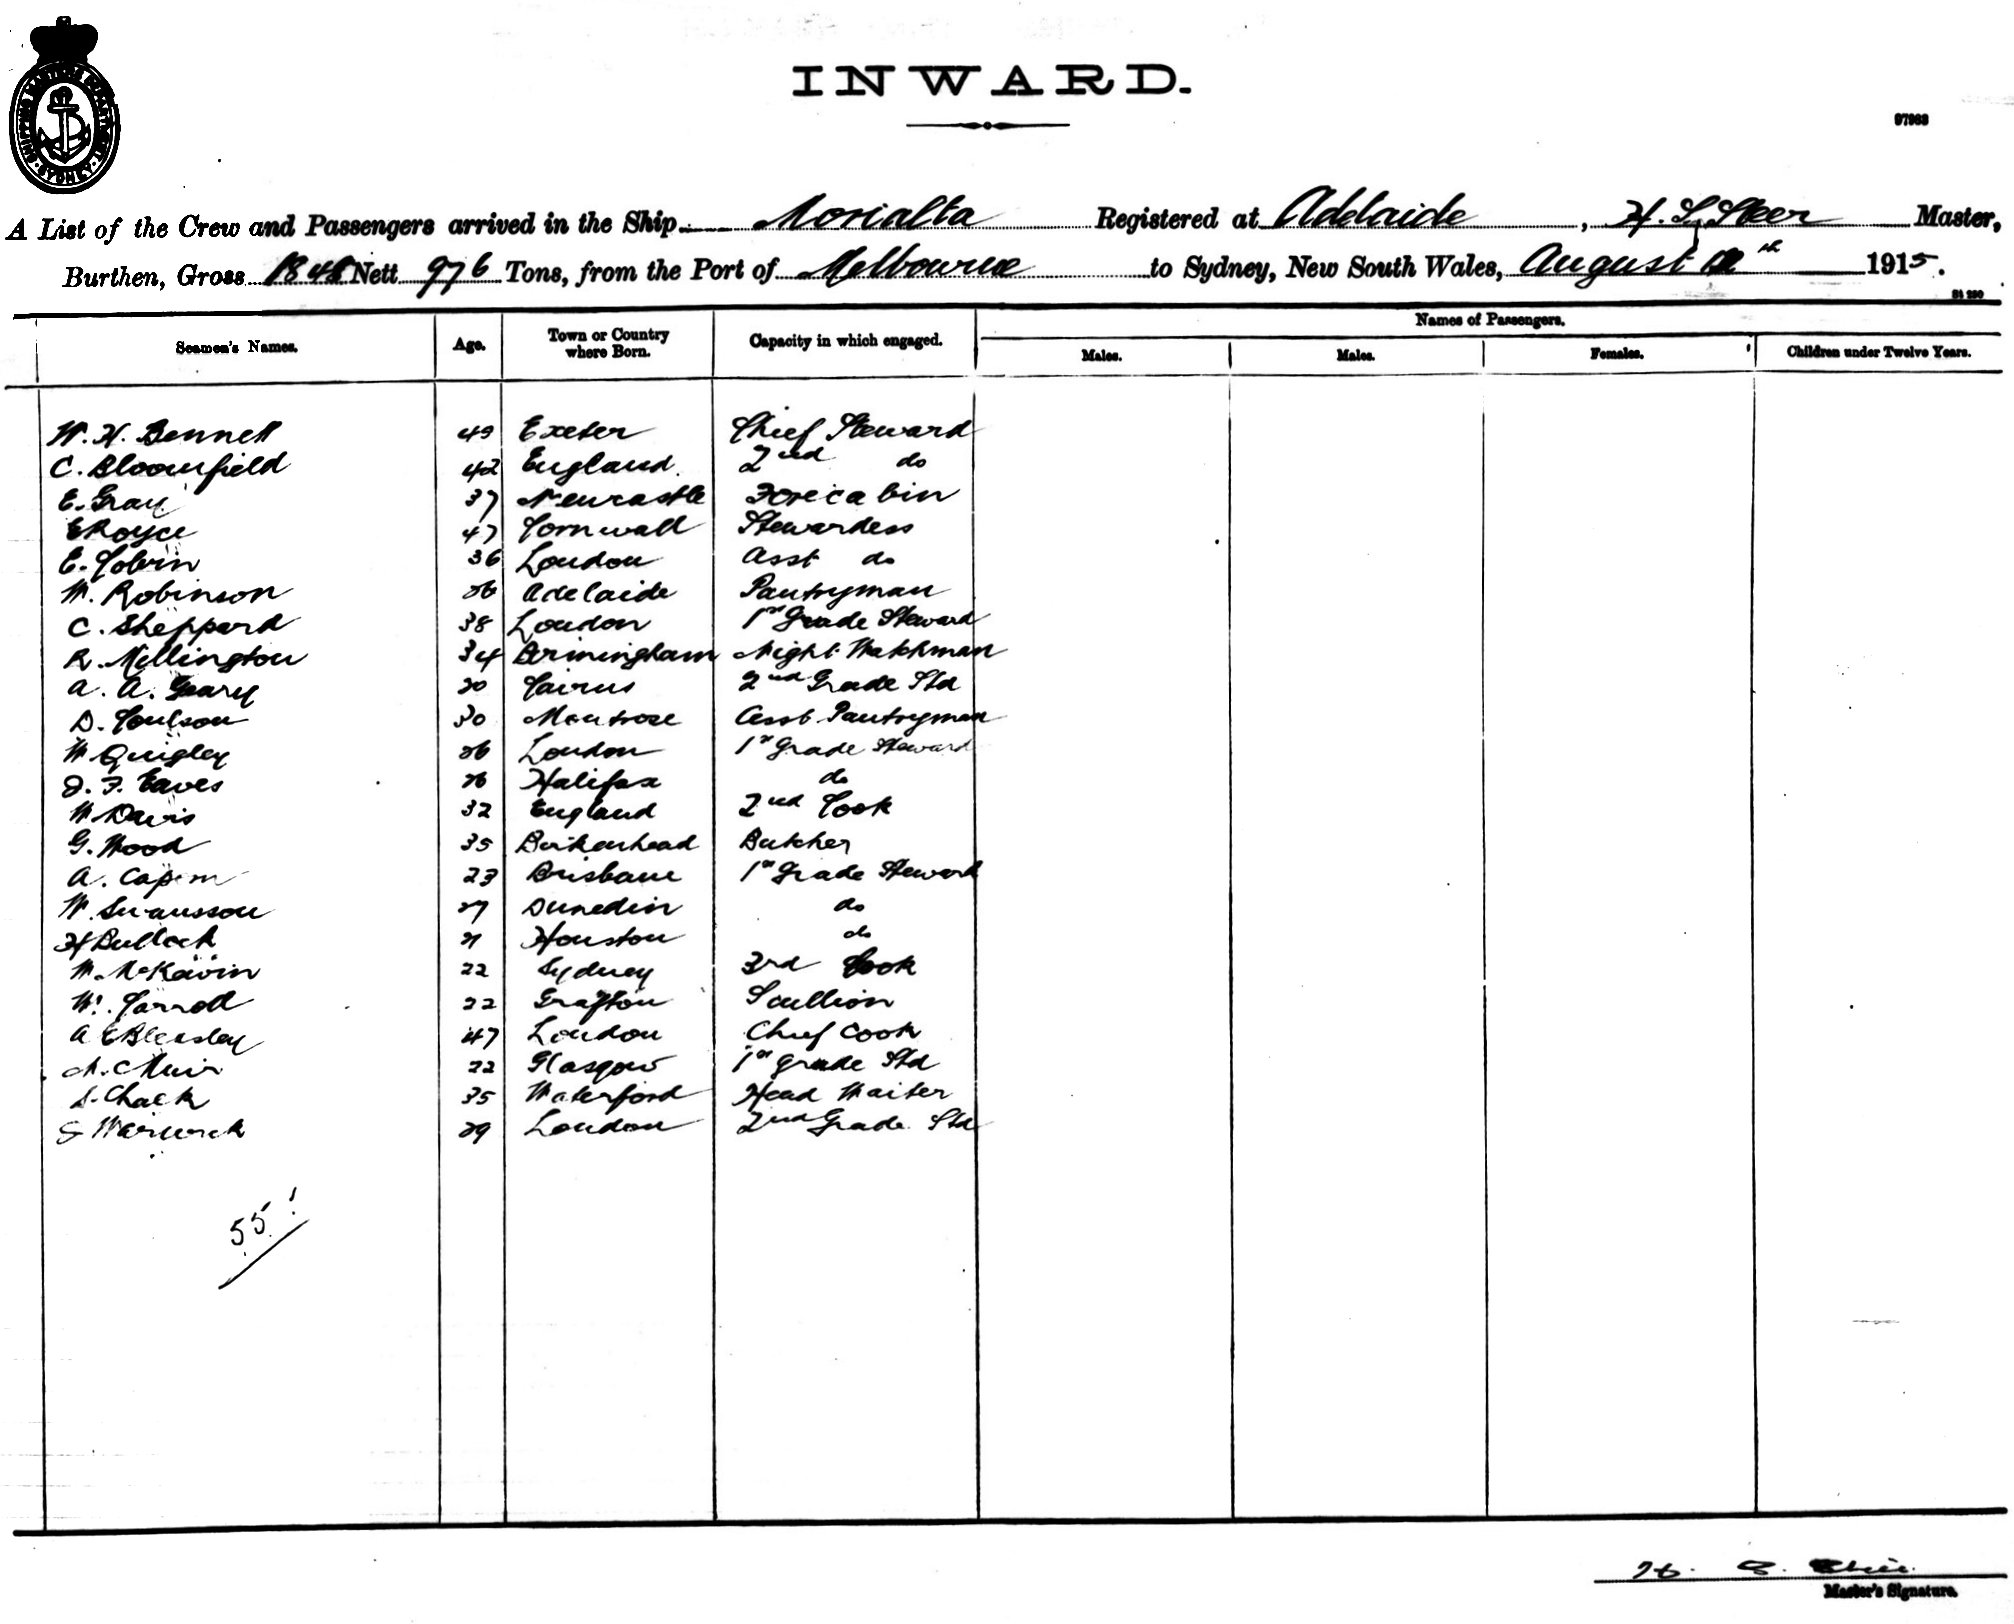 SHIPPING MASTER'S DEPARTMENT SYDNEY
INWARD.
A List of the Crew and Passengers arrived in the Ship Morialta Registered at Adelaide, H. S. Steer Master,
Burthen, Gross 1848 Nett 976 Tons, from the Port of Melbourne to Sydney, New South Wales, August th 1915.
Seamen's Names. Age. Town or Country where Born. Capacity in which engaged. Names of Passengers.
Males. Males. Females. Children under Twelve Years.
W. H. Bennett 49 Exeter Chief Steward
C. Bloomfield 42 England 2nd do
E. Gray 37 Newcastle Forecabin
E Royce 47 Cornwall Stewardess
E. Tobin 36 London Asst do
W. Robinson 26 Adelaide Pantryman
C. Sheppard 38 London 1st Grade Steward
R. Millington 34 Birmingham Night Watchman
A. A. Geary 20 Cairns 2nd Grade Std
D. Coulson 30 Montrose Asst Pantryman
W Quigley 26 London 1st Grade Steward
J. F. Eaves 26 Halifax do
W Davis 32 England 2nd Cook
G. Wood 35 Birkenhead Butcher
A. Capern 23 Brisbane 1st Grade Steward
W. Swansson 27 Dunedin do
H Bullock 21 Houston do
W. McKavin 22 Sydney 3rd Cook
W. Carroll 22 Grafton Scullion
A E Bleasley 47 London Chief Cook
A. Muir 22 Glasgow 1st Grade Std
S. Chalk 35 Waterford Head Waiter
S Warwick 29 London 2nd Grade Std
55
H. S. Steer
Master's Signature.